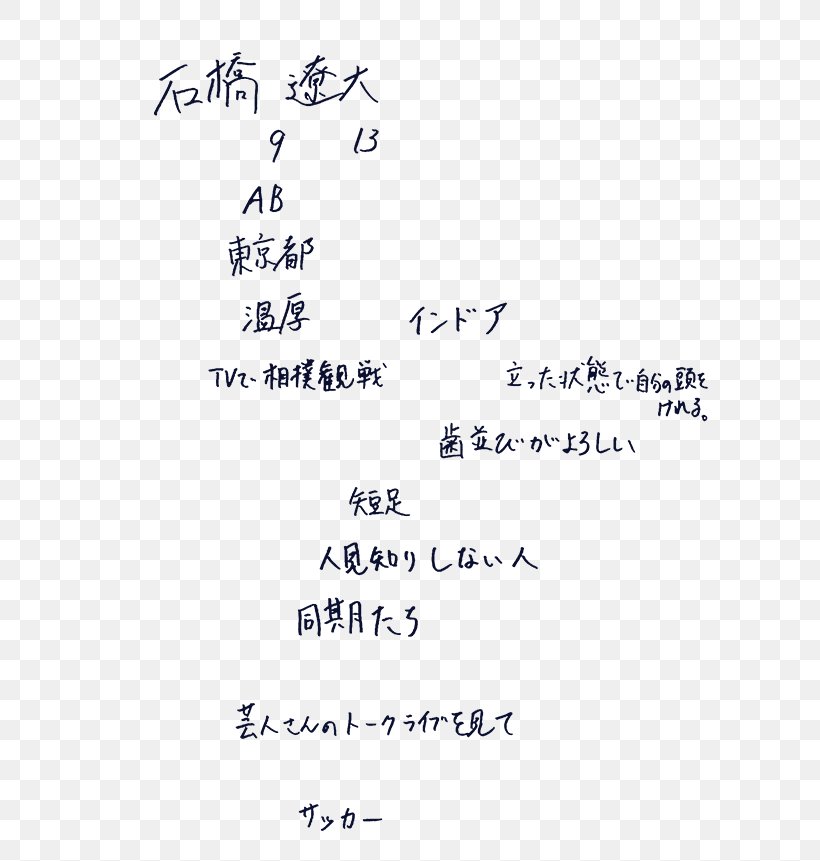 石橋 遼大
9 13
AB
東京都
温厚 インドア
TVで相撲観戦 立った状態で自分の頭を
けれる。
歯並びがよろしい
短足
人見知りしない人
同期たち
芸人さんのトークライブを見て
サッカー